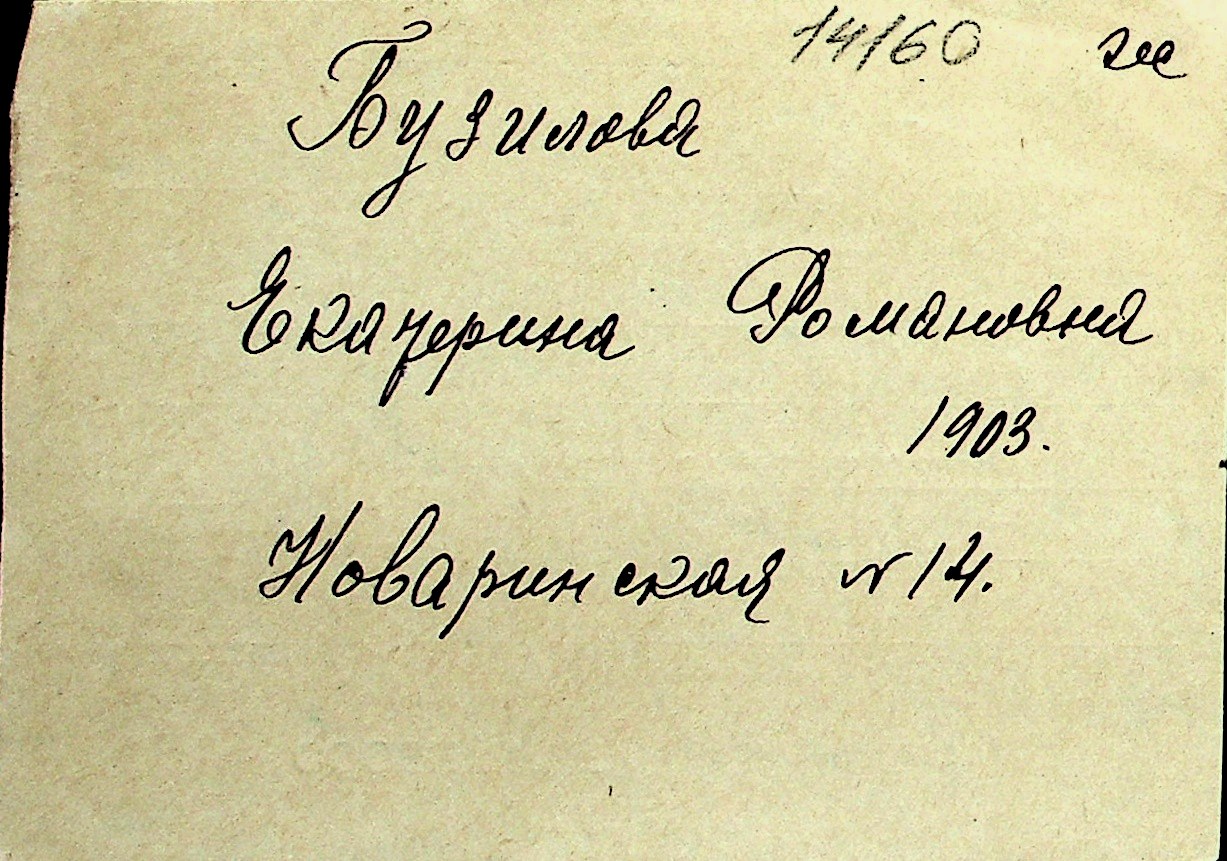 14160 ж
Бузилова
Екатерина Романовна
1903.
Новаринская № 14.